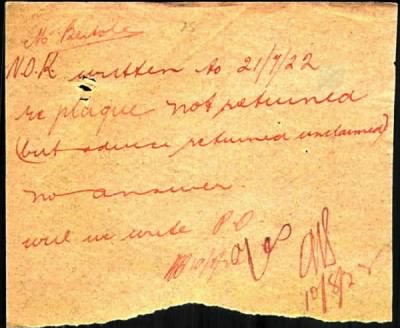 N.O.K. written to 21/7/22
re plaque not returned
(but advice returned unclaimed)
no answer.
will we write P.O.
10/8/22